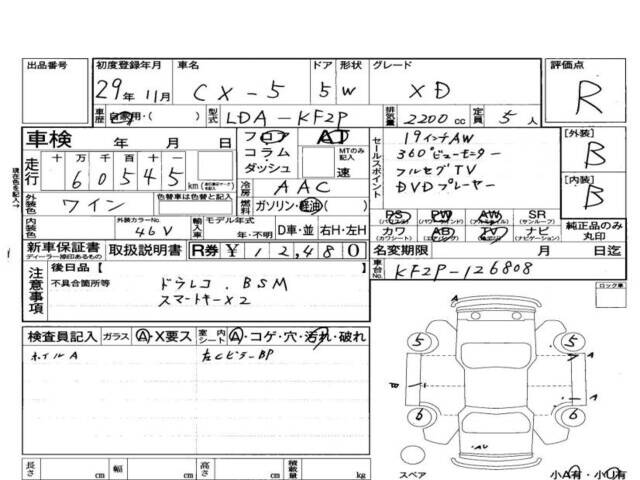 出品番号 初度登録年月 車名 ドア 形状 グレード 評価点
29年 11月 CX-5 5 W XD R
車歴 自家用・( ) 型式 LDA-KF2P 排気量 2200cc 定員 5人
車検 年 月 日 フロア AT セールスポイント 19インチAW [外装]
コラム・ MTのみ記入 360°ビューモニター B
走行 十 万 千 百 十 一 ダッシュ 速 フルセグTV
60545 km 冷房 AAC DVDプレーヤー [内装]
外装色 ワイン 色替車は色替え記入 燃料 ガソリン・軽油( ) B
現在色を記入→
PS PW AW SR
(パワステ) (パワーウィンドウ) (アルミホイル) (サンルーフ)
内装色 外装カラーNo. 46V 輸入車 モデル年式 年・不明 D車・並 右H・左H カワ AB TV ナビ 純正品のみ丸印
(カワシート) (エアバッグ) (ナビゲーション)
新車保証書 取扱説明書 R券 ¥12,480 名変期限 月 日迄
ディーラー捺印あるもの
注意事項 後日品[ ] 車台No. KF2P-126808
不具合箇所等 ドラレコ.BSM
スマートキー×2
ロック車
検査員記入 ガラス A・X要ス 室内シート A・コゲ・穴・汚れ・破れ
ホイルA 左Cピラー BP
A
5 5
A
A
6 6
AU
スペア
長さ cm 幅 cm 高さ cm 積載量 kg 小A有・小U有